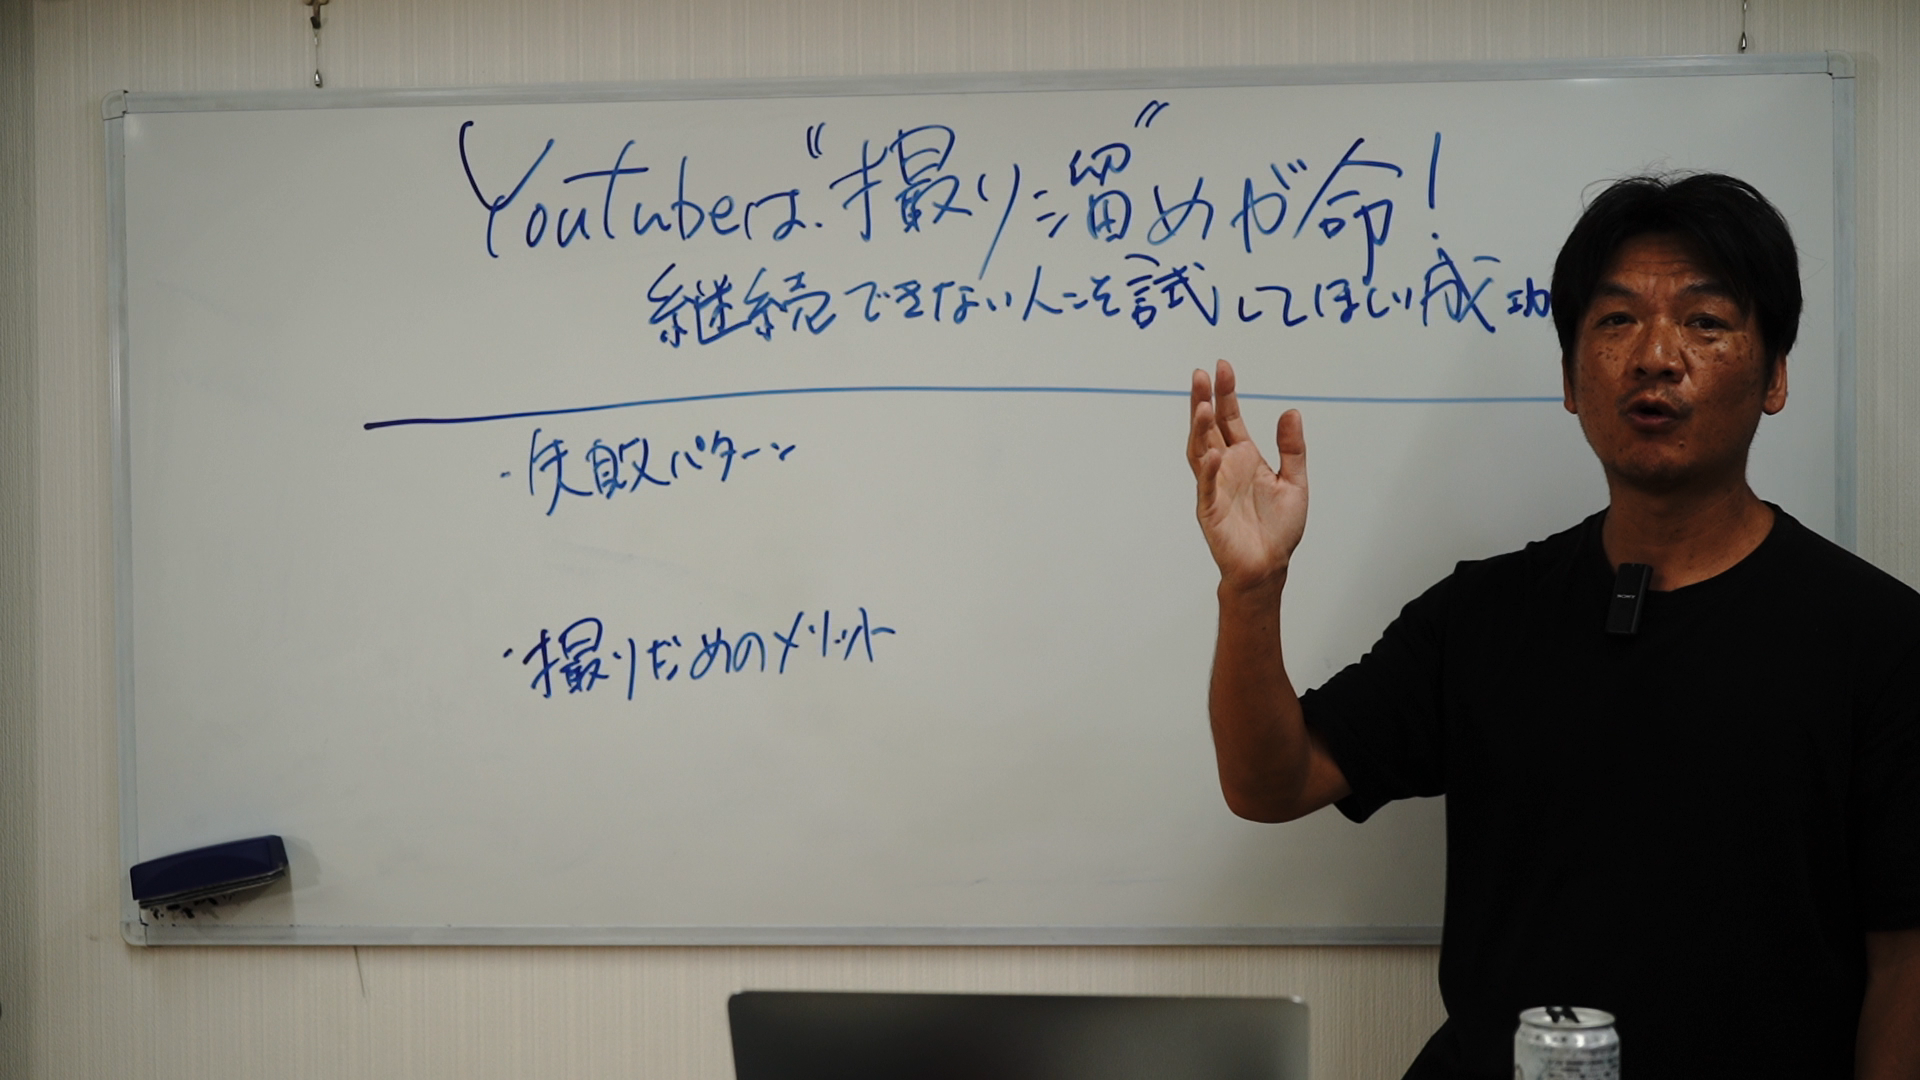 Youtubeは“撮り溜め”が命!
継続できない人こそ試してほしい成功
・失敗パターン
・撮りだめのメリット
SONY